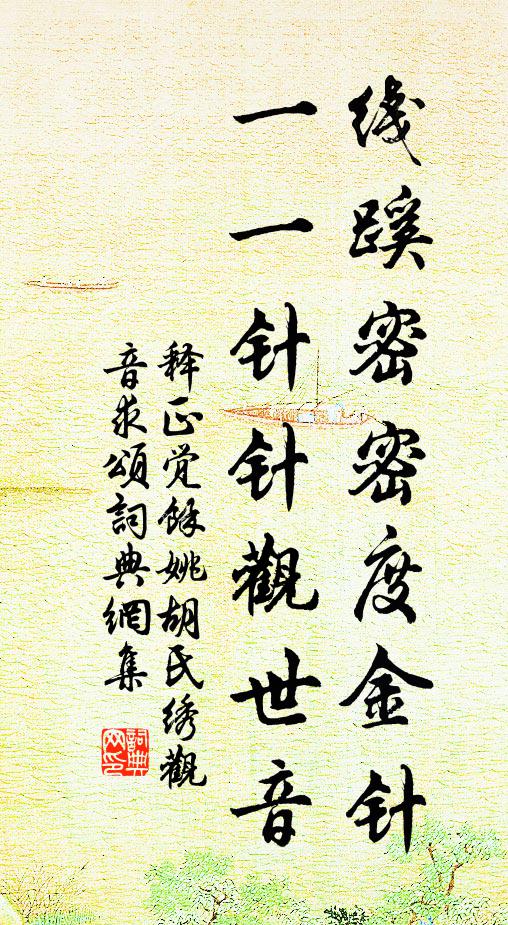 线蹊密密度金针
一一针针觀世音
释正觉馀姚胡氏绣觀
音求頌詞典網集
詞典网印